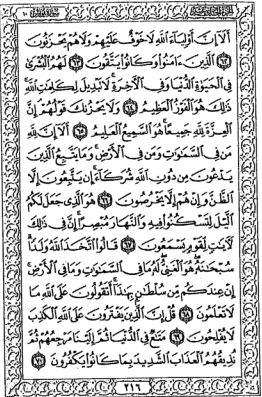 أَلَآ إِنَّ أَوْلِيَآءَ ٱللَّهِ لَا خَوْفٌ عَلَيْهِمْ وَلَا هُمْ يَحْزَنُونَ
٦٢ ٱلَّذِينَ ءَامَنُوا۟ وَكَانُوا۟ يَتَّقُونَ ٦٣ لَهُمُ ٱلْبُشْرَىٰ
فِى ٱلْحَيَوٰةِ ٱلدُّنْيَا وَفِى ٱلْءَاخِرَةِ لَا تَبْدِيلَ لِكَلِمَٰتِ ٱللَّهِ
ذَٰلِكَ هُوَ ٱلْفَوْزُ ٱلْعَظِيمُ ٦٤ وَلَا يَحْزُنكَ قَوْلُهُمْ إِنَّ
ٱلْعِزَّةَ لِلَّهِ جَمِيعًا هُوَ ٱلسَّمِيعُ ٱلْعَلِيمُ ٦٥ أَلَآ إِنَّ لِلَّهِ
مَن فِى ٱلسَّمَٰوَٰتِ وَمَن فِى ٱلْأَرْضِ وَمَا يَتَّبِعُ ٱلَّذِينَ
يَدْعُونَ مِن دُونِ ٱللَّهِ شُرَكَآءَ إِن يَتَّبِعُونَ إِلَّا
ٱلظَّنَّ وَإِنْ هُمْ إِلَّا يَخْرُصُونَ ٦٦ هُوَ ٱلَّذِى جَعَلَ لَكُمُ
ٱلَّيْلَ لِتَسْكُنُوا۟ فِيهِ وَٱلنَّهَارَ مُبْصِرًا إِنَّ فِى ذَٰلِكَ
لَءَايَٰتٍ لِّقَوْمٍ يَسْمَعُونَ ٦٧ قَالُوا۟ ٱتَّخَذَ ٱللَّهُ وَلَدًا
سُبْحَٰنَهُۥ هُوَ ٱلْغَنِىُّ لَهُۥ مَا فِى ٱلسَّمَٰوَٰتِ وَمَا فِى ٱلْأَرْضِ
إِنْ عِندَكُم مِّن سُلْطَٰنٍۭ بِهَٰذَآ أَتَقُولُونَ عَلَى ٱللَّهِ مَا
لَا تَعْلَمُونَ ٦٨ قُلْ إِنَّ ٱلَّذِينَ يَفْتَرُونَ عَلَى ٱللَّهِ ٱلْكَذِبَ
لَا يُفْلِحُونَ ٦٩ مَتَٰعٌ فِى ٱلدُّنْيَا ثُمَّ إِلَيْنَا مَرْجِعُهُمْ ثُمَّ
نُذِيقُهُمُ ٱلْعَذَابَ ٱلشَّدِيدَ بِمَا كَانُوا۟ يَكْفُرُونَ ٧٠
٢١٦